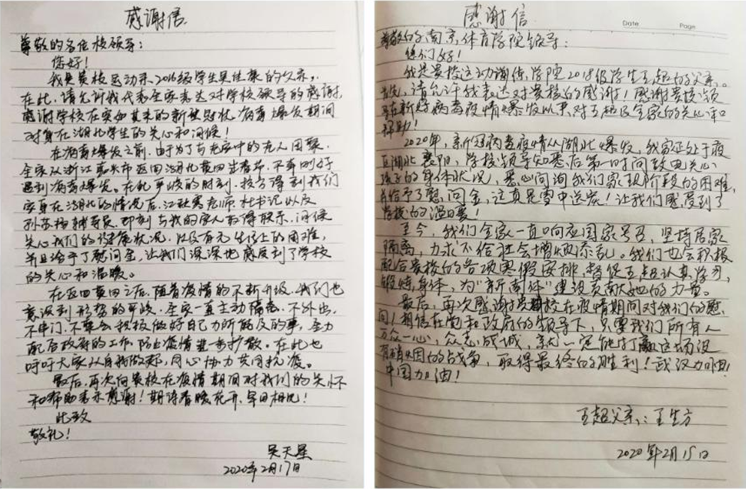 感谢信
尊敬的各位校领导：
您好！
我是贵校运动系2016级学生吴佳集的父亲，
在此，请允许我代表全家表达对学校领导的感谢，
感谢学校在突如其来的新冠肺炎病毒爆发期间
对身在湖北学生的关心和问候！
在病毒爆发之前，由于为了与老家中的老人团聚，
全家从浙江嘉兴市返回湖北黄冈老家，不幸刚好
遇到病毒爆发。在此严峻的时刻，校方得到我们
全家身在湖北的情况后，
即刻与我的家人取得联系，问候
关心我们的健康状况，以及有无生活上的困难，
并且给予了慰问金，让我们深深地感受到了学校
的关心和温暖。
在返回黄冈之后，随着疫情的不断升级，我们也
意识到形势的严峻，全家一直主动隔离，不外出，
不串门，不聚会，积极做好自己力所能及的事，全力
配合政府的工作，防止疫情进一步扩散。在此也
呼吁大家从自我做起，同心协力共同抗疫。
最后，再次向贵校在疫情期间对我们的关怀
和帮助表示感谢！期待春暖花开，早日相见！
此致
敬礼！
吴天星
2020年2月17日
感谢信
Date Page
尊敬的南京体育学院领导：
您们好！
我是贵校运动训练学院2018级学生王超的父亲。
首先，请允许我表达对贵校的感谢！感谢贵校
在新冠病毒疫情爆发以来，对王超及全家的关心和
帮助！
2020年，新冠病毒疫情从湖北爆发，我家正处于疫
区湖北襄阳，学校领导知悉后第一时间致电关心
孩子的身体状况，悉心问询我们家现阶段的困难，
并给予了慰问金，这真是雪中送炭！让我们感受到了
学校的温暖！
至今，我们全家一直响应国家号召，坚持居家
隔离，力求不给社会增加添乱。我们也会积极
配合贵校的各项寒假安排，督促王超认真学习，
锻炼身体，为“新南体”建设贡献他的力量。
最后，再次感谢贵校在疫情期间对我们的慰
问！相信在党和政府的领导下，只要我们所有人
万众一心，众志成城，就一定能打赢这场没
有硝烟的战争，取得最终的胜利！武汉加油！
中国加油！
王超父亲：王生方
2020年2月15日